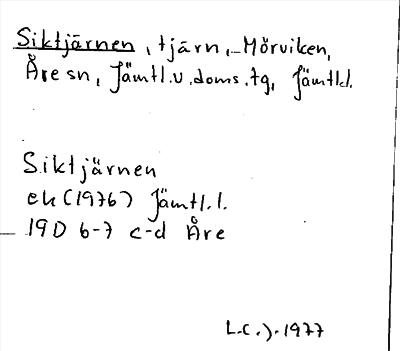 Siktjärnen, tjärn, Mörviken,
Åre sn, Jämtl.v.doms.tg, Jämtl.l.
Siktjärnen
ek (1976) Jämtl.l.
19D 6-7 c-d Åre
L.C.J. 1977